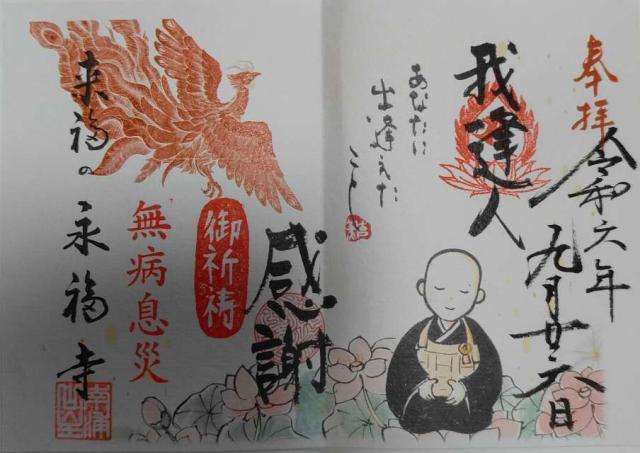 奉拝
令和六年
九月廿六日
我逢人
あなたに
出逢えた
こと
感謝
御祈祷
無病息災
来福の
永福寺